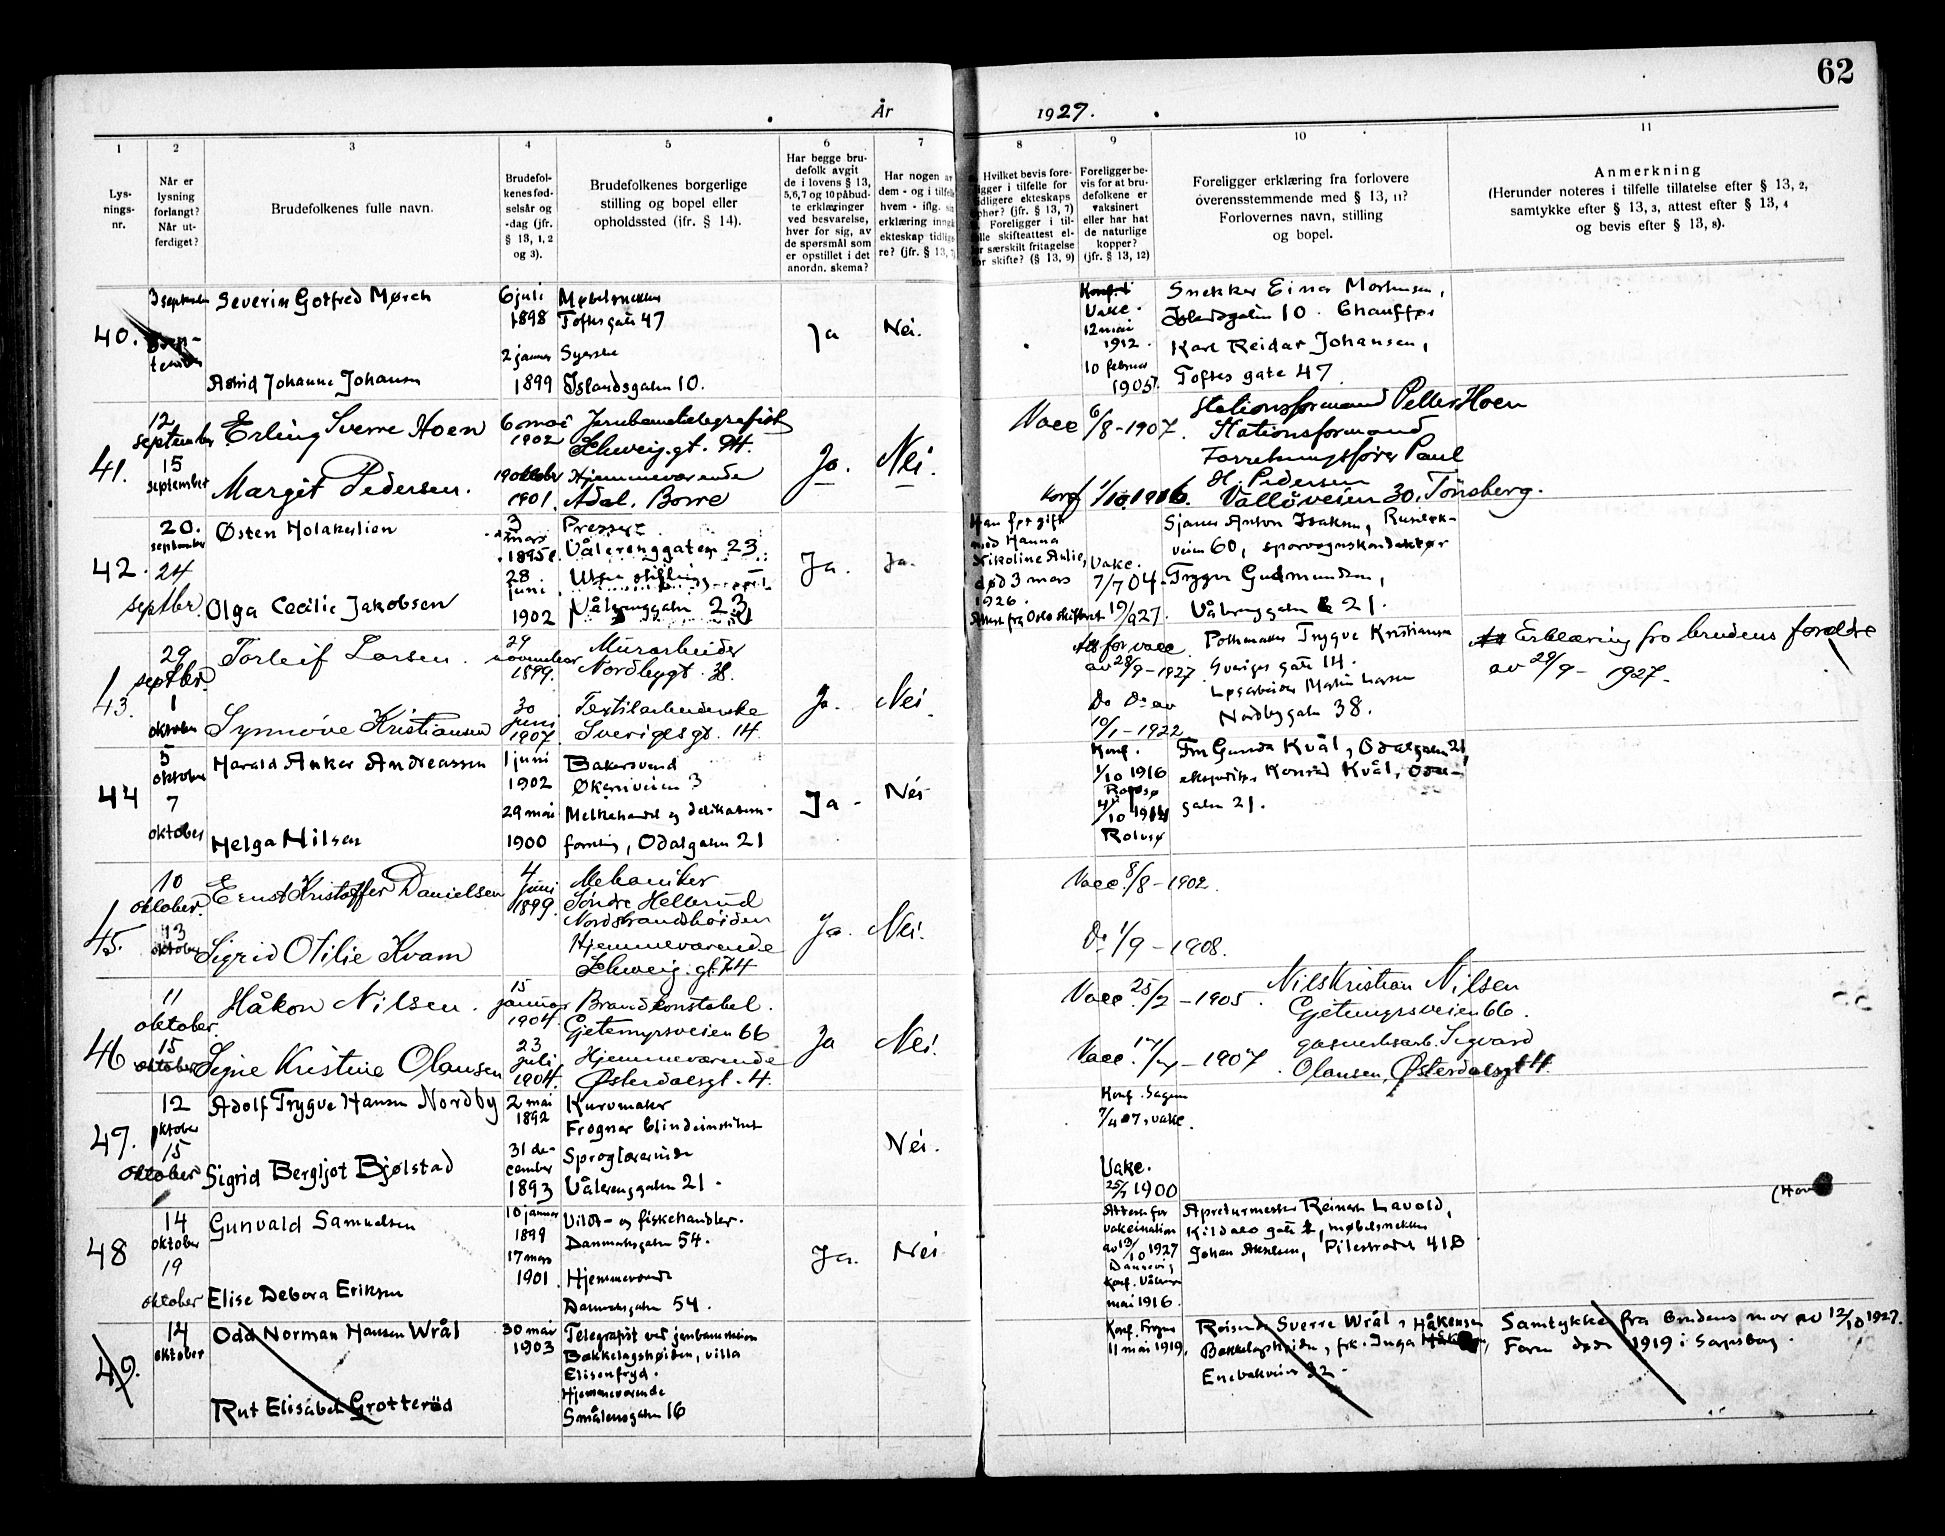 62
År 1927.
1 2 3 4 5 6 7 8 9 10 11
Lys-
nings-
nr.
Når er
lysning
forlangt?
Når ut-
ferdiget?
Brudefolkenes fulle navn.
Brudefol-
kenes fød-
selsår og
-dag (jfr.
§ 13, 1, 2
og 3).
Brudefolkenes borgerlige
stilling og bopel eller
opholdssted (jfr. § 14).
Har begge bru-
defolk avgit
de i lovens § 13,
5,6,7 og 10 påbud-
te erklæringer
ved besvarelse,
hver for sig, av
de spørsmål som
er opstillet i det
anordn. skema?
Har nogen av
dem - og i tilfelle
hvem - iflg. sin
erklæring inngått
ekteskap tidlige-
re? (jfr. § 13,
Hvilket bevis fore-
ligger i tilfelle for
tidligere ekteskaps
ophør? (jfr. § 13, 7)
Foreligger i til-
felle skifteattest el-
ler særskilt fritagelse
for skifte? (§ 13, 9)
Foreligger be-
vis for at bru-
defolkene er
vaksinert
eller har hat
de naturlige
kopper?
(jfr. § 13, 12)
Foreligger erklæring fra forlovere
overensstemmende med § 13, 11?
Forlovernes navn, stilling
og bopel.
Anmerkning
(Herunder noteres i tilfelle tillatelse efter § 13, 2,
samtykke efter § 13, 3, attest efter § 13, 4
og bevis efter § 13, 8).
40.
3 september
Severin Gotfred Mørch
6 juli
1898
Møbelsnekker
Toftesgate 47
Ja
Nei.
Vake.
12 mai
1912.
Snekker Einar Mortensen,
Islandsgaten 10. Chauffør
Astrid Johanne Johansen
2 januar
1899
Syerske
Islandsgaten 10.
10 februar
1905.
Karl Reidar Johansen,
Toftes gate 47
41.
12
september
15
september
Erling Sverre Hoen
6 mai
1902
Jernbanetelegrafist
Schweig.gt. 74.
Ja.
Nei.
Vacc 6/8-1907.
Stationsformand Petter Hoen
Stationsformand
Margit Pedersen.
19 oktober
1901.
Hjemmeværende
Adal. Borre
konf 1/10 1916.
Forretningsfører Paul
H. Pedersen
Vallöveien 30. Tönsberg.
42.
20.
september
24
septbr.
Østen Holakylien
3
mars
1895
Vålerenggaten 23
Ja.
Ja.
Han før gift
med Hanna
Nikoline Aulie,
død 3 mars
1926.
Attest fra Oslo skifteret
Vake.
7/7 04
19/9 27.
Sjauer Anton Isaksen, Ruseløk-
veien 60, sporvognskonduktør
Trygve Gudmundsen,
Vålerenggaten 21.
Olga Cecilie Jakobsen
28
juni
1902
Vålerenggaten 23
43.
29
septbr.
1
oktober
Torleif Larsen.
november
1899.
Murarbeider
Nordbygt. 38.
Ja.
Nei.
Att for vacc
av 28/9-1927
Do Do av
10/1-1922
Pottemaker Trygve Kristiansen
Sveriges gate 14.
Løsarbeider Martin Larsen
Nordbygaten 38.
Erklæring fra brudens foreldre
av 29/9 - 1927.
Synnöve Kristiansen
30
juni
1907
Textilarbeiderske
Sverigesgt. 14.
44
5
oktober
7
oktober
Harald Anker Andreassen
1 juni
1902
Bakersvend
Økernveien 3
Ja -
Nei
Konf.
1/10 1916
Rolvsø
4/10 1914
Rolvsø
Fru Gunda Kvål, Odalgaten 21
ekspeditør Konrad Kvål, Odal-
gaten 21.
Helga Nilsen
29 mai
1900
Melkehandel og delikatesse-
forretning, Odalgaten 21
45.
10
oktober.
13
oktober
Ernst Kristoffer Danielsen
4
juni
1899.
Mekaniker
Söndre Hellerud
Nordstrandshöiden
Ja.
Nei.
Vacc. 8/8-1902.
Sigrid Otilie Kvam
Hjemmeværende
Schweig.gt. 74
Do 1/9-1908.
46
11
oktober.
15
oktober
Håkon Nilsen.
15
januar
1904.
Brandkonstabel.
Gjetemyrsveien 66
Ja
Nei.
Vacc. 25/2-1905.
Nils Kristian Nilsen
Gjetemyrsveien 66.
Signe Kristine Olausen
23
juli
1904.
Hjemmeværende
Østerdalsgt. 4.
Vacc. -1907
gasverksarb. Sigvard
Olausen, Østerdalsgt 4.
47.
12
oktober
15
oktober
Adolf Trygve Hansen Nordby
2 mai
1892
Kurvmaker
Frogner blindeinstitut
Nei.
Konf. Sagene
7/4 07, vake.
Sigrid Bergljot Bjølstad
31 de-
cember
1893
Sproglærerinde
Vålerenggaten 21.
Vake.
25/7 1900
48
14
oktober
19
oktober
Gunvald Samuelsen
10 januar
1899
Vildt- og fiskehandler.
Danmarksgaten 54.
Ja.
Nei
Attest for
vakcination
av 13/10 1927
Dannevig
Apreturmester Reinert Lavold,
Kildals gate 2, møbelsnekker
Johan Akselsen, Pilestredet 41B
Elise Debora Eriksen
17 mars
1901.
Hjemmeværende
Danmarksgaten 54.
Konf. Våleren
mai 1916.
49.
14
oktober
Odd Norman Hansen Wrål
30 mai
1903
Telegrafist ved jernbanestation
Bækkelagshøiden, villa
Elisenfryd.
Konf. Frogner
11 mai 1919,
Reisende Sverre Wrål, Håkensen
Bækkelagshøiden, frk. Inga
Enebakveien 32 -
Samtykke fra brudens mor av 12/10 1927.
Faren døde 1919 i Sarpsborg.
Rut Elisabet Grotterød
Hjemmeværende
Smålensgaten 16